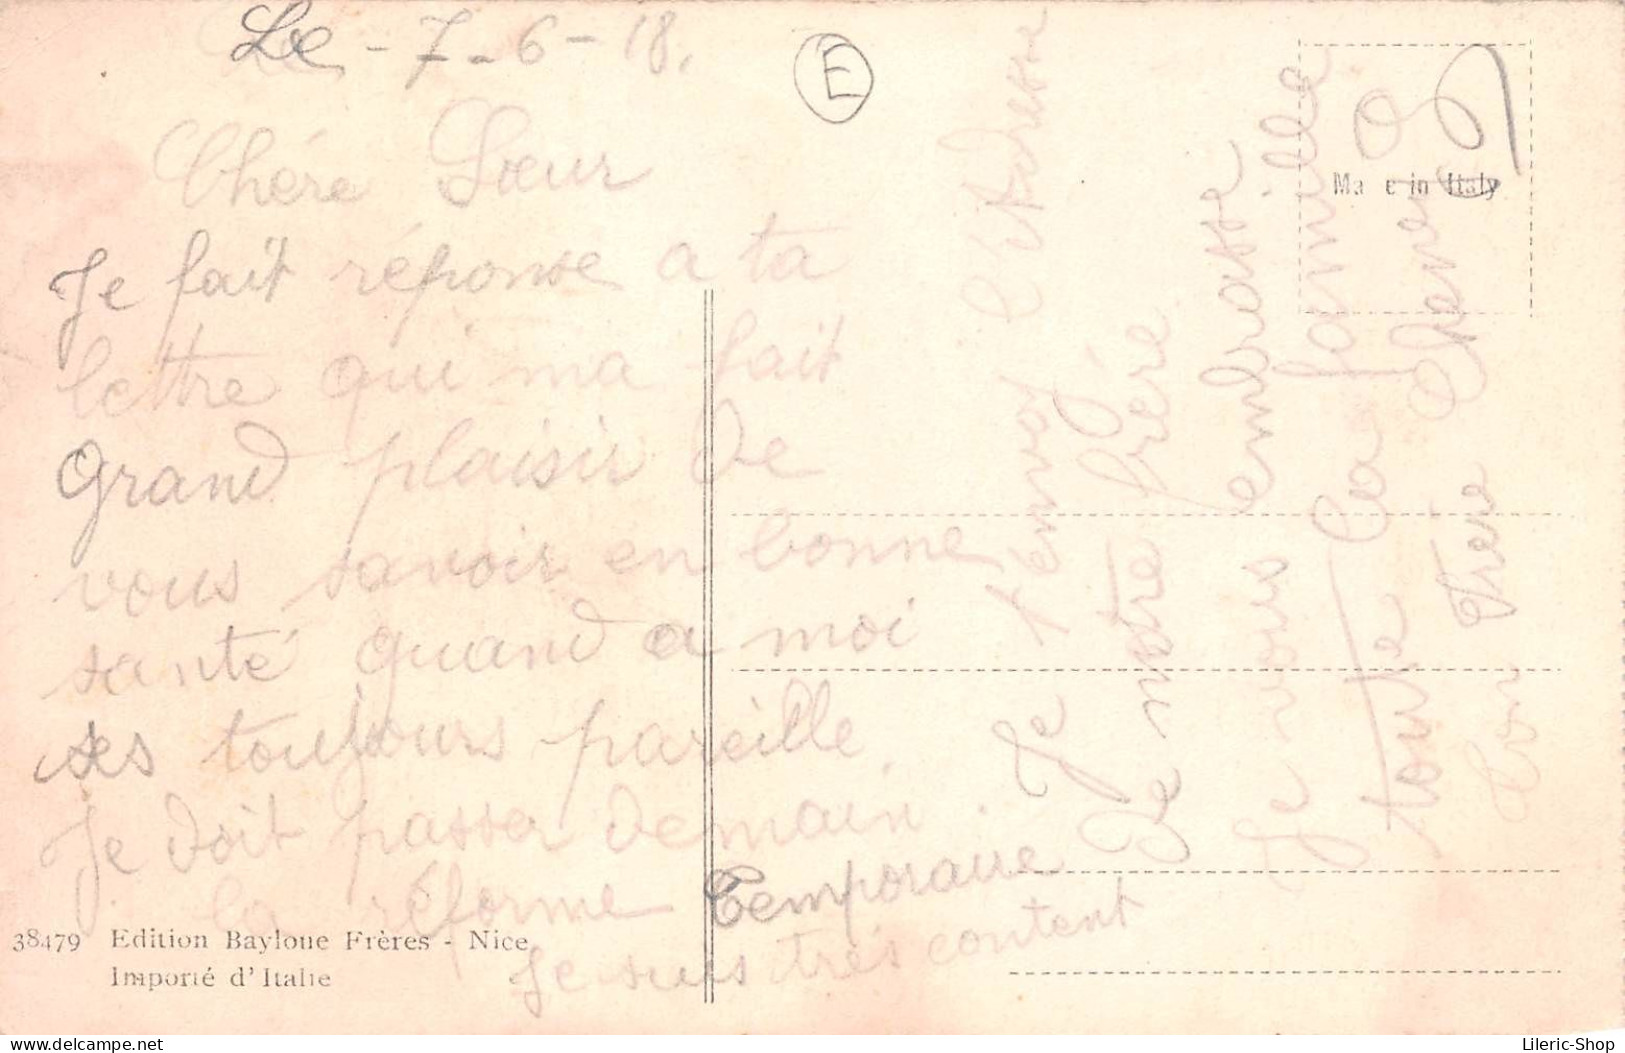 Le - 7 - 6 - 18.
E
Chére Sœur
Je fait réponse a ta
lettre qui ma fait
Grand plaisir de
vous savoir en bonne
santé quand a moi
ses toujours pareille
Je doit passer demain.
la réforme Temporaire
Je suis très content
Je t envoi l'Adresse
De notre fréré
Je vous embrasse
toute la famille
Ton Frère
Made in Italy
38479 Edition Bayloue Frères - Nice
Importé d'Italie
delcampe.net
Lileric-Shop